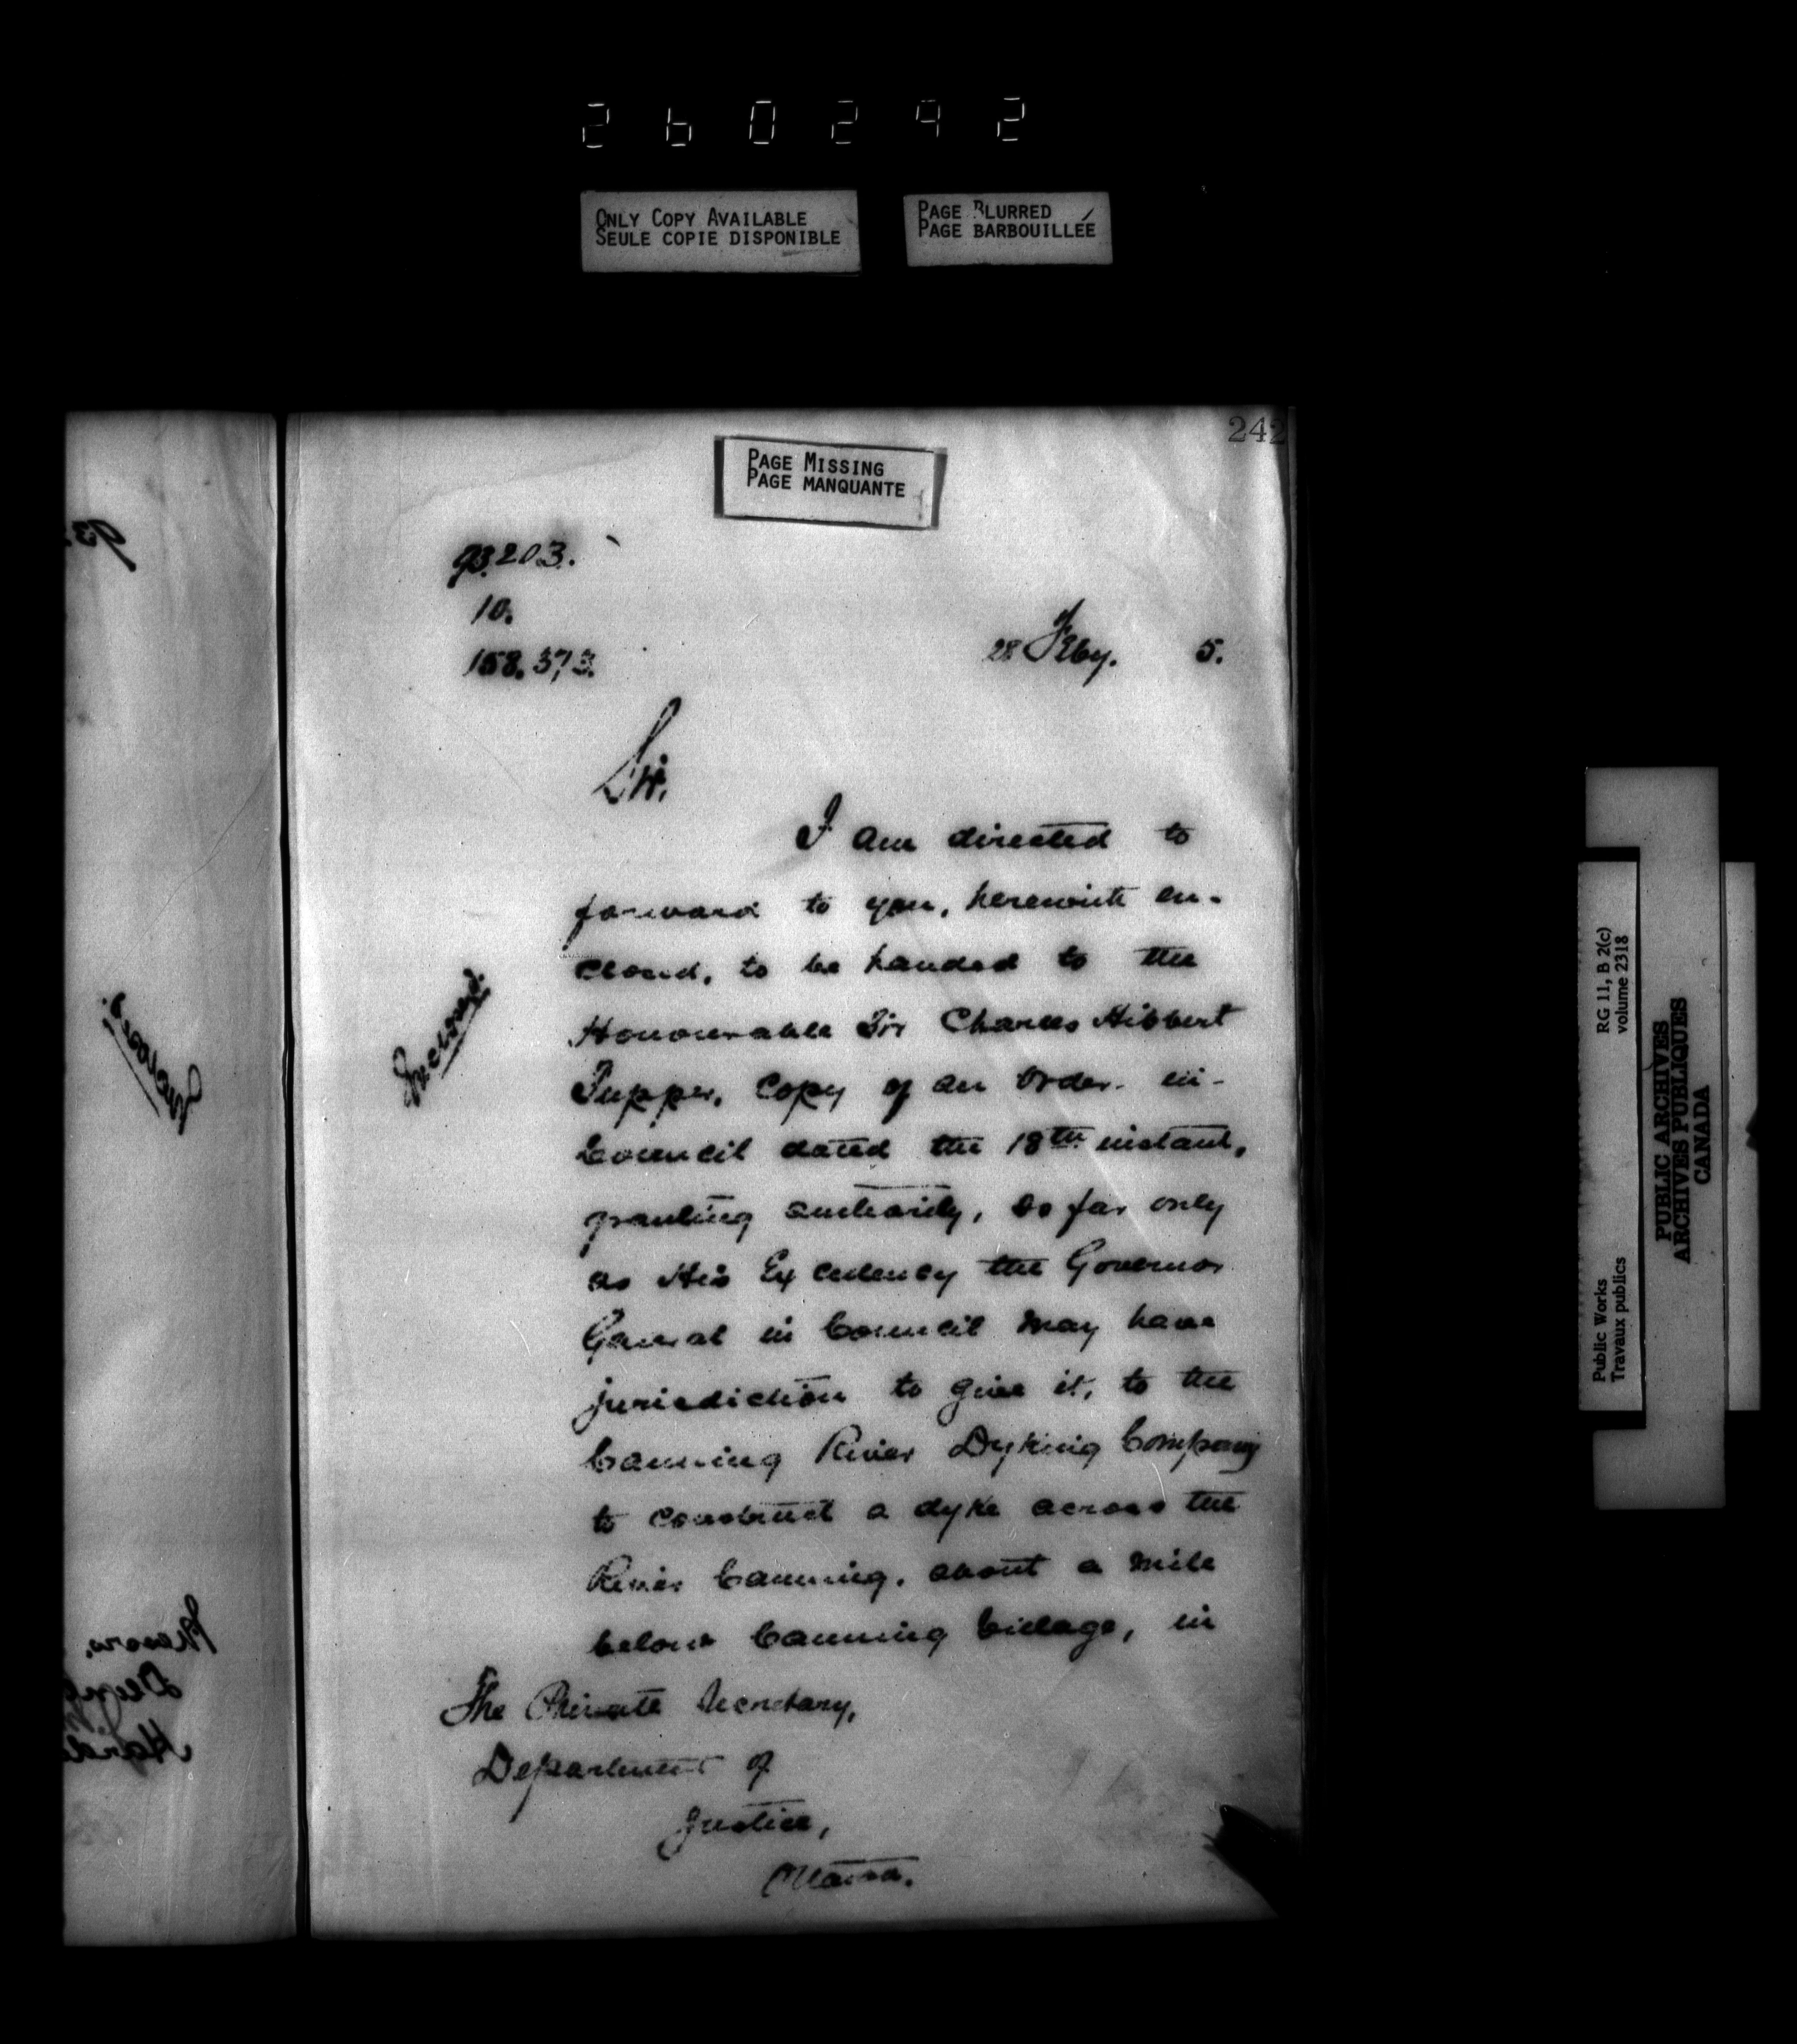 260292
ONLY COPY AVAILABLE
SEULE COPIE DISPONIBLE
PAGE BLURRED
PAGE BARBOUILLÉE
242
PAGE MISSING
PAGE MANQUANTE
93.203.
10.
158.373.
28 Feby. 5.
Sir,
I am directed to
forward to you, herewith en-
closed, to be handed to the
Honourable Sir Charles Hibbert
Tupper, Copy of an Order- in-
Council dated the 18th instant,
granting authority, so far only
as His Excellency the Governor
General in Council may have
jurisdiction to give it, to the
Canning River Dyking Company
to construct a dyke across the
River Canning, about a mile
below Canning Village, in
Inclosed.
The Private Secretary,
Department of
Justice,
Ottawa.
RG 11, B 2(c)
volume 2318
Public Works
Travaux publics
PUBLIC ARCHIVES
ARCHIVES PUBLIQUES
CANADA